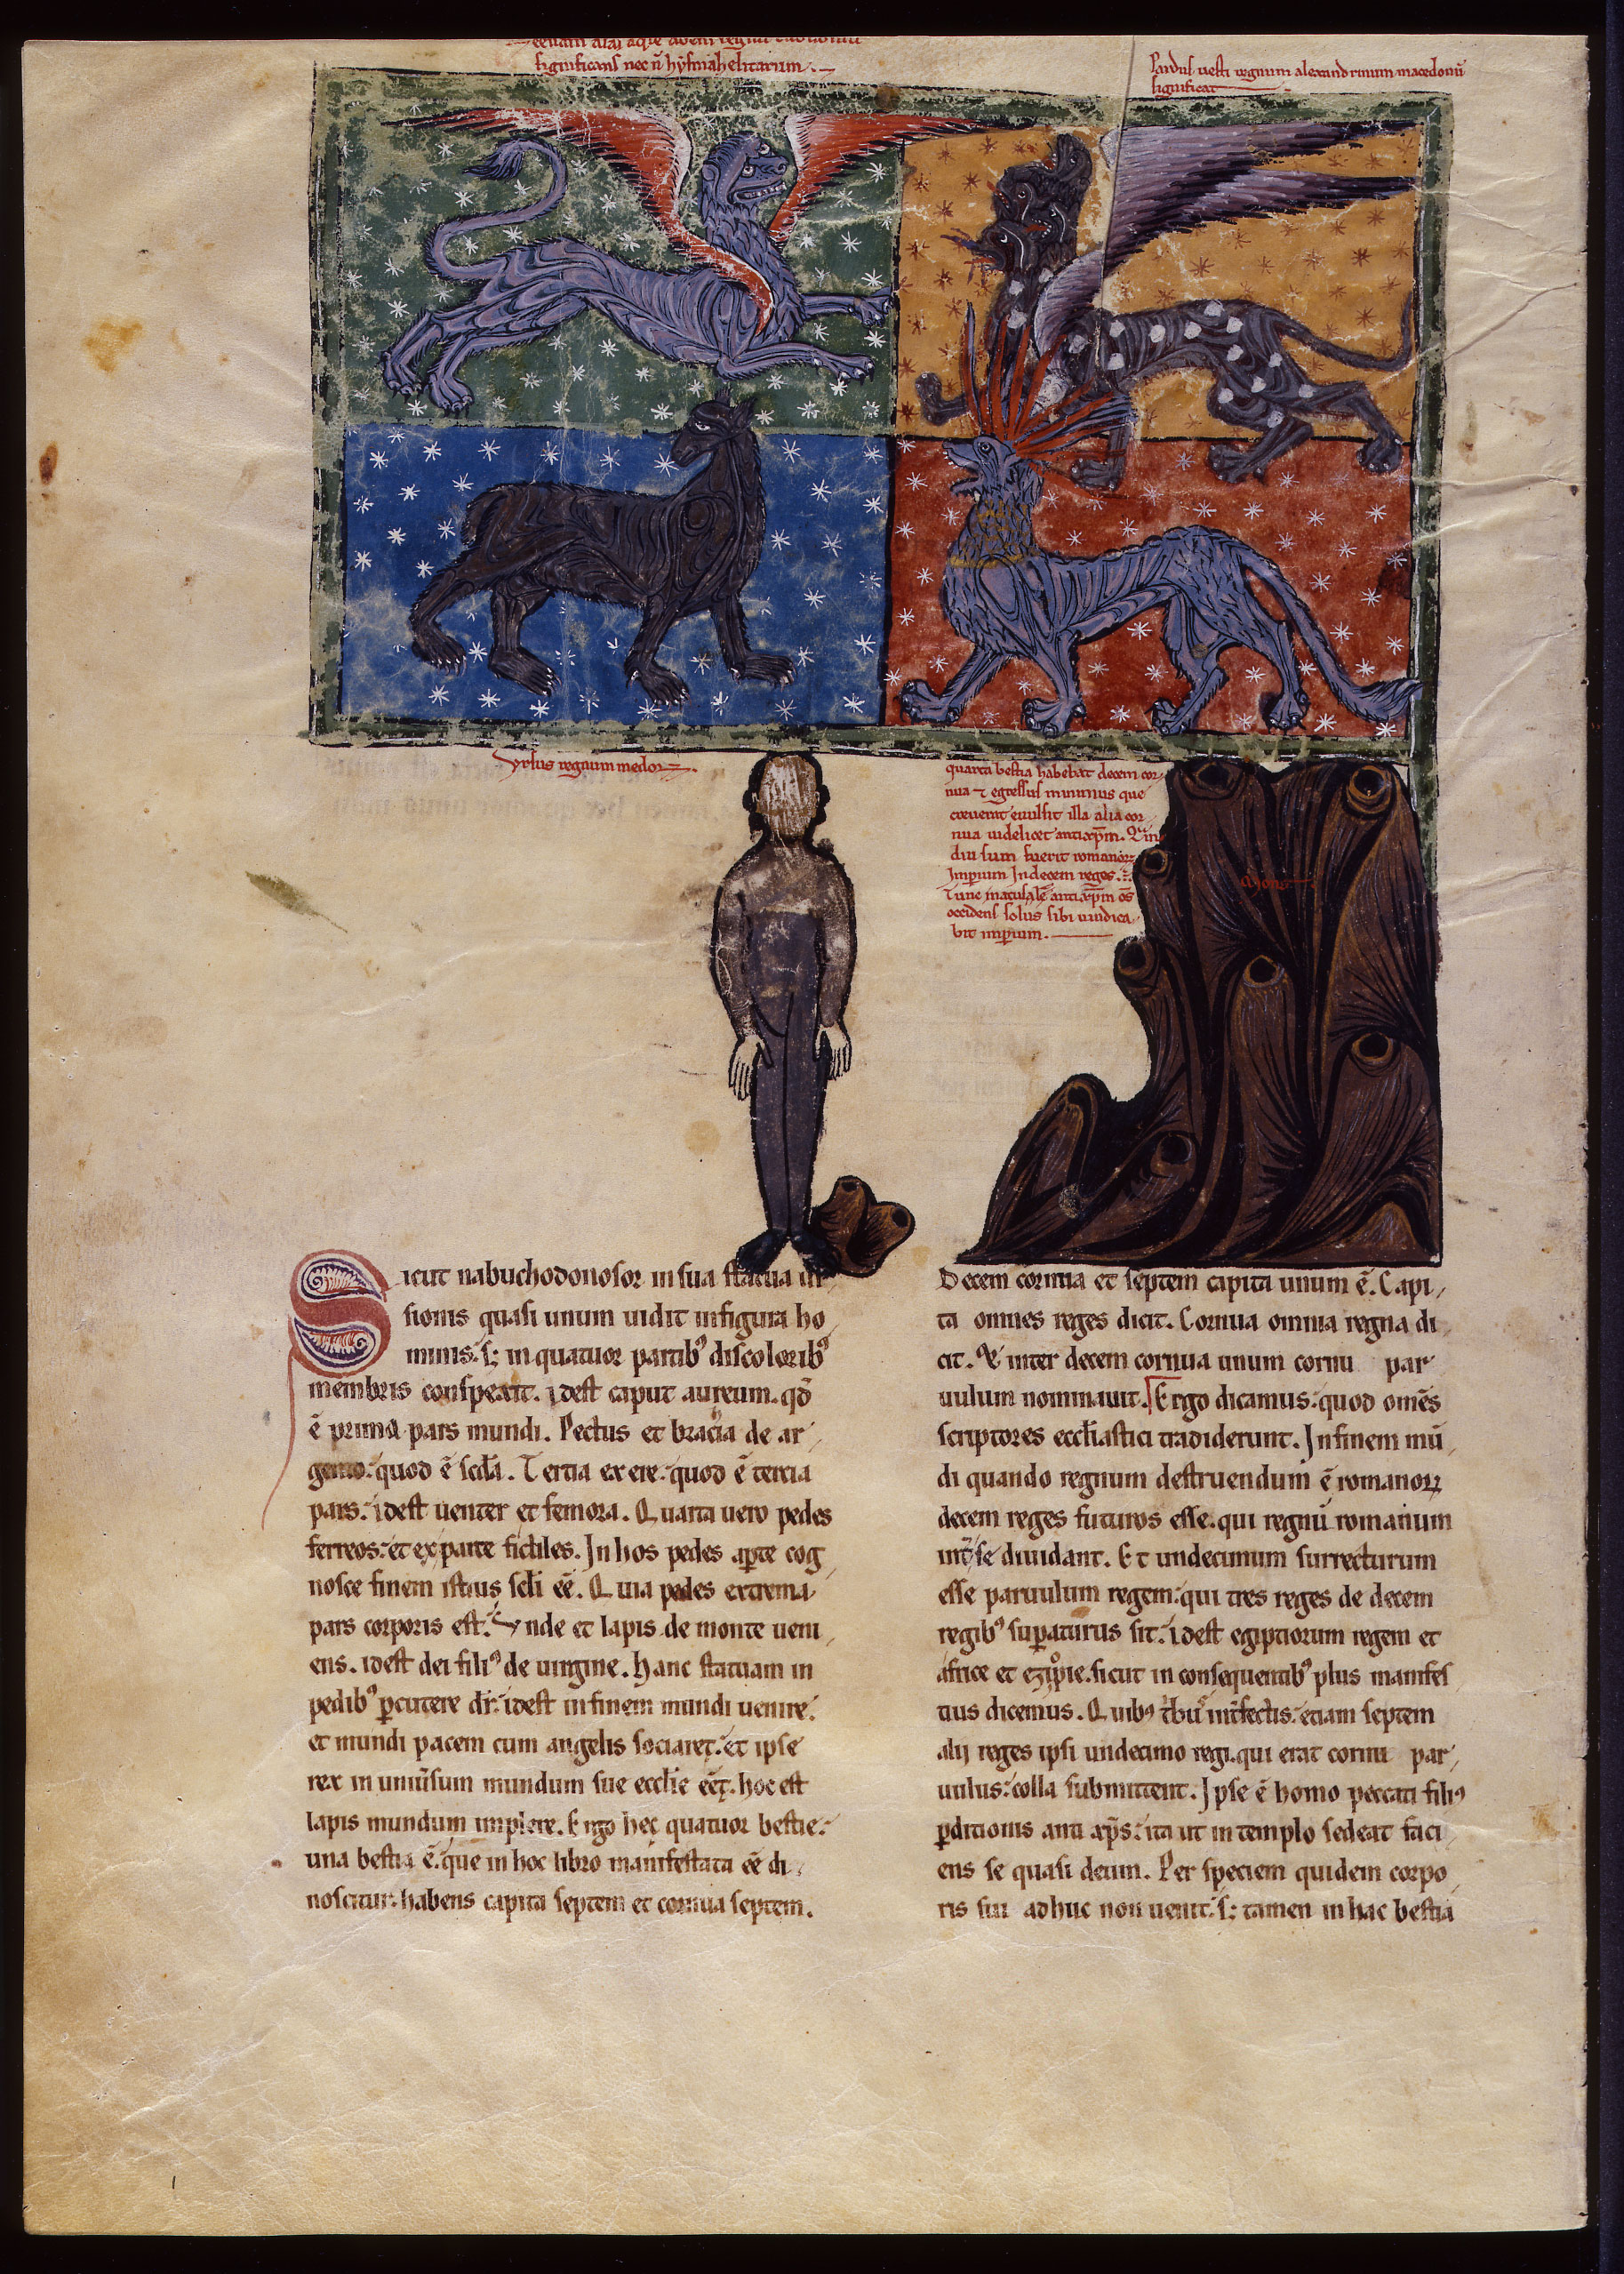 significans nec n̄ hysmahelitarum.
Pardus uesti regnum alexandrinum macedonū
significat
Vrsus regnum medoꝝ.
quarta bestia habebat decem cor
nua ⁊ egressus minimus que
creuerat euulsit illa alia cor
nua uidelicet antix̄pm.
diu sum fuerit romanoꝝ
Imperium Indecem reges
antix̄pm
occidens solus sibi uindica
bit imꝑium.
Mons
Sicut nabuchodonosor in sua statua ui
sionis quasi unum uidit infigura ho
minis. s; in quatuor partibꝰ discoloribꝰ
membris conspexit. idest caput aureum. qd̄
ē prima pars mundi. Pectus et bracia de ar
gento. quod ē scd̄a. Tertia ex ere. quod ē tercia
pars. idest uenter et femora. Quarta uero pedes
ferreos. et ex parte fictiles. In hos pedes aꝑte cog
nosce finem istius scl̄i eē. Quia pedes extrema
pars corporis est. Vnde et lapis de monte ueni
ens. idest dei filiꝰ de uirgine. hanc statuam in
pedibꝰ ꝑcutere dr̄. idest infinem mundi uenire.
et mundi pacem cum angelis sociaret. et ipse
rex in uniu̅sum mundum sue eccl̄ie eēt. hoc est
lapis mundum implere. Ergo hec quatuor bestie.
una bestia ē. que in hoc libro manifestata eē di
noscitur. habens capita septem et cornua septem.
Decem cornua et septem capita unum ē. Capi
ta omnes reges dicit. Cornua omnia regna di
cit. Et inter decem cornua unum cornu par
uulum nominauit. Ergo dicamus. quod om̄s
scriptores eccl̄iastici tradiderunt. Infinem mū
di quando regnum destruendum ē romanoꝝ
decem reges futuros esse. qui regnū romanum
int̄ se diuidant. Et undecimum surrecturum
esse paruulum regem. qui tres reges de decem
regibꝰ suꝑaturus sit. idest egiptiorum regem et
africe et eziopie. sicut in consequentibꝰ plus manifes
tius dicemus. Quibꝰ tribꝰ int̄fectis. etiam septem
alij reges ipsi undecimo regi. qui erat cornu par
uulus. colla submittent. Ipse ē homo peccati filiꝰ
ꝑditionis anti xp̄s. ita ut in templo sedeat faci
ens se quasi deum. Per speciem quidem corpo
ris sui adhuc non uenit. s; tamen in hac bestia